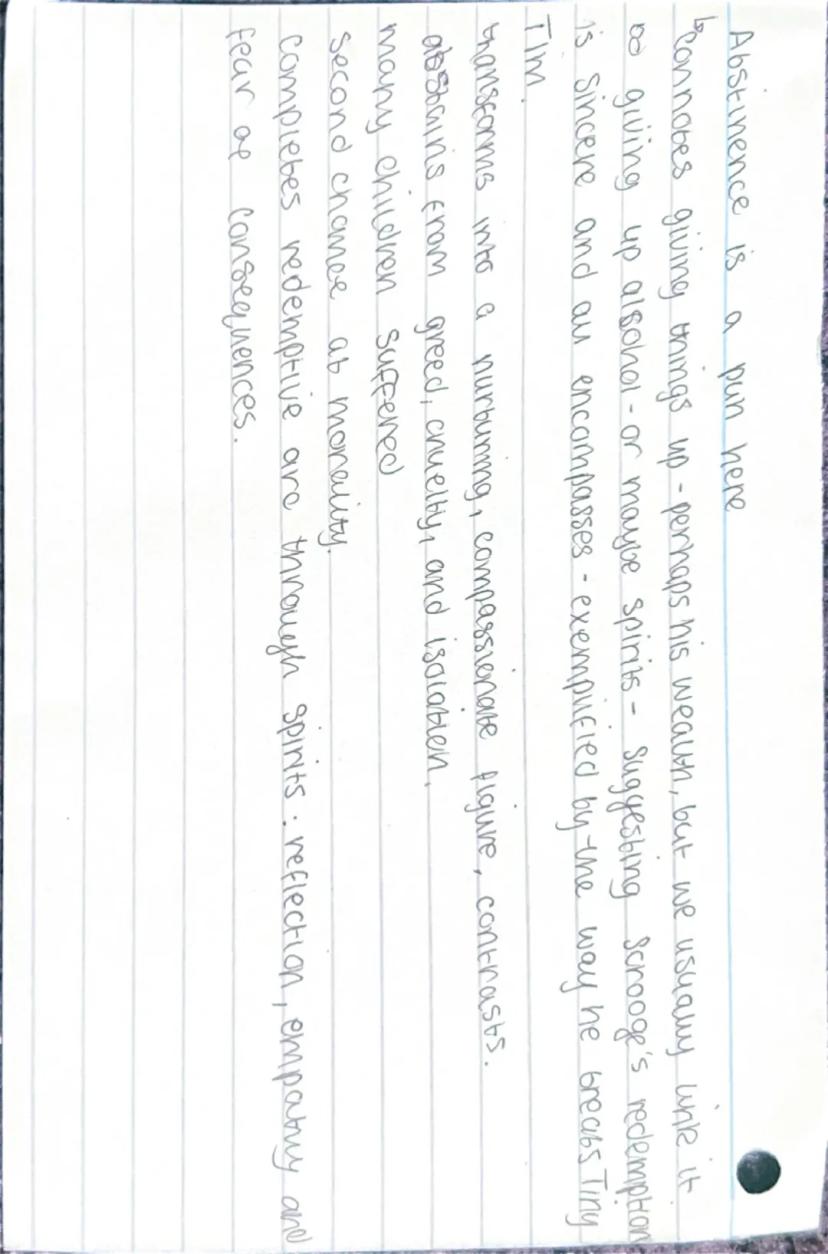 Abstinence is a pun here
↳ Connotes giving things up - perhaps his wealth, but we usually link it
to giving up alcohol - or maybe spirits - suggesting Scrooge's redemption
is sincere and all encompasses - exemplified by the way he treats Tiny
Tim.
transforms into a nurturing, compassionate figure, contrasts.
abstains from greed, cruelty, and isolation.
many children suffered
second chance at morality.
Completes redemptive arc through spirits: reflection, empathy and
fear of consequences.